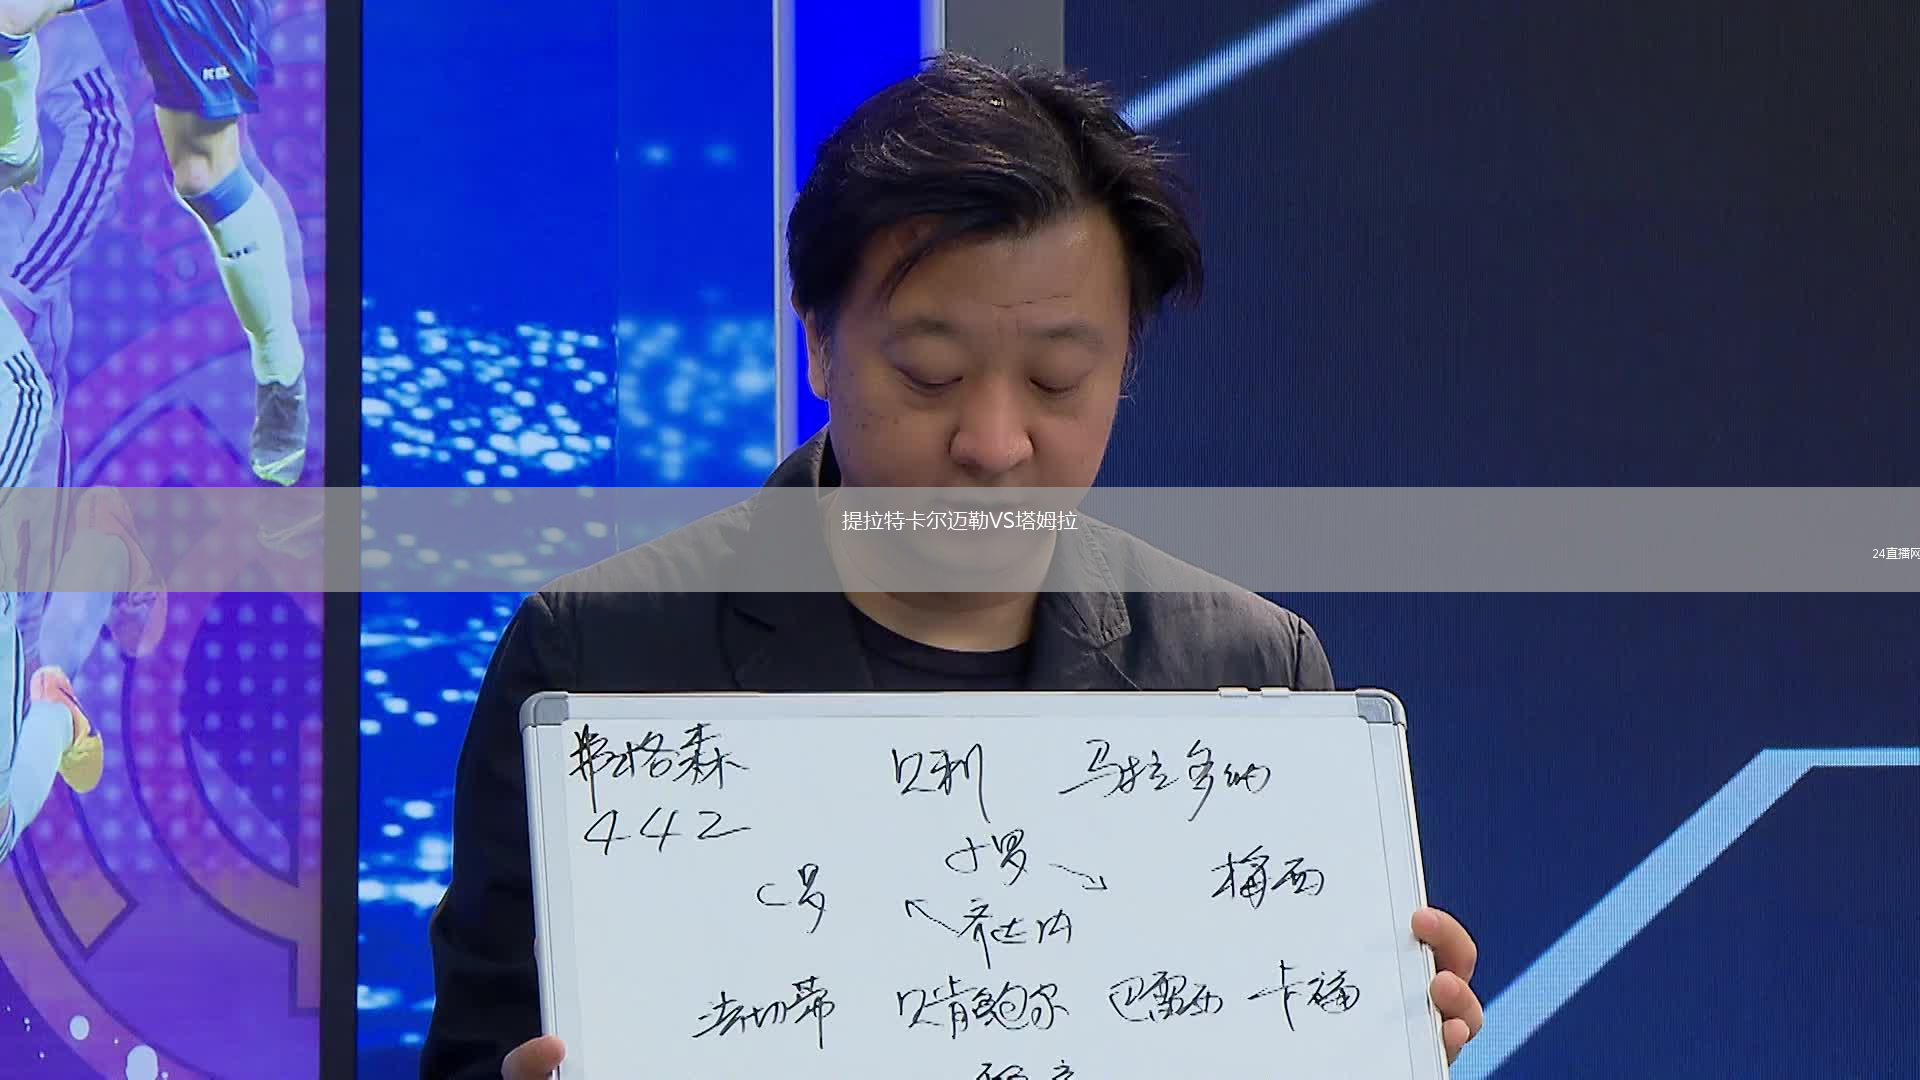 提拉特卡尔迈勒VS塔姆拉
24直播网
弗格森 贝利 马拉多纳
442
小罗
C罗 梅西
齐达内
法切蒂 贝肯鲍尔 巴雷西 卡福